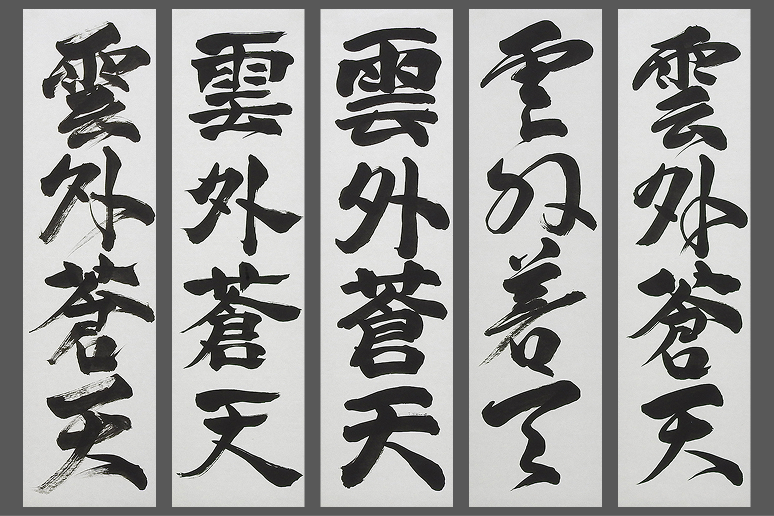 雲外蒼天
雲外蒼天
雲外蒼天
雲外蒼天
雲外蒼天